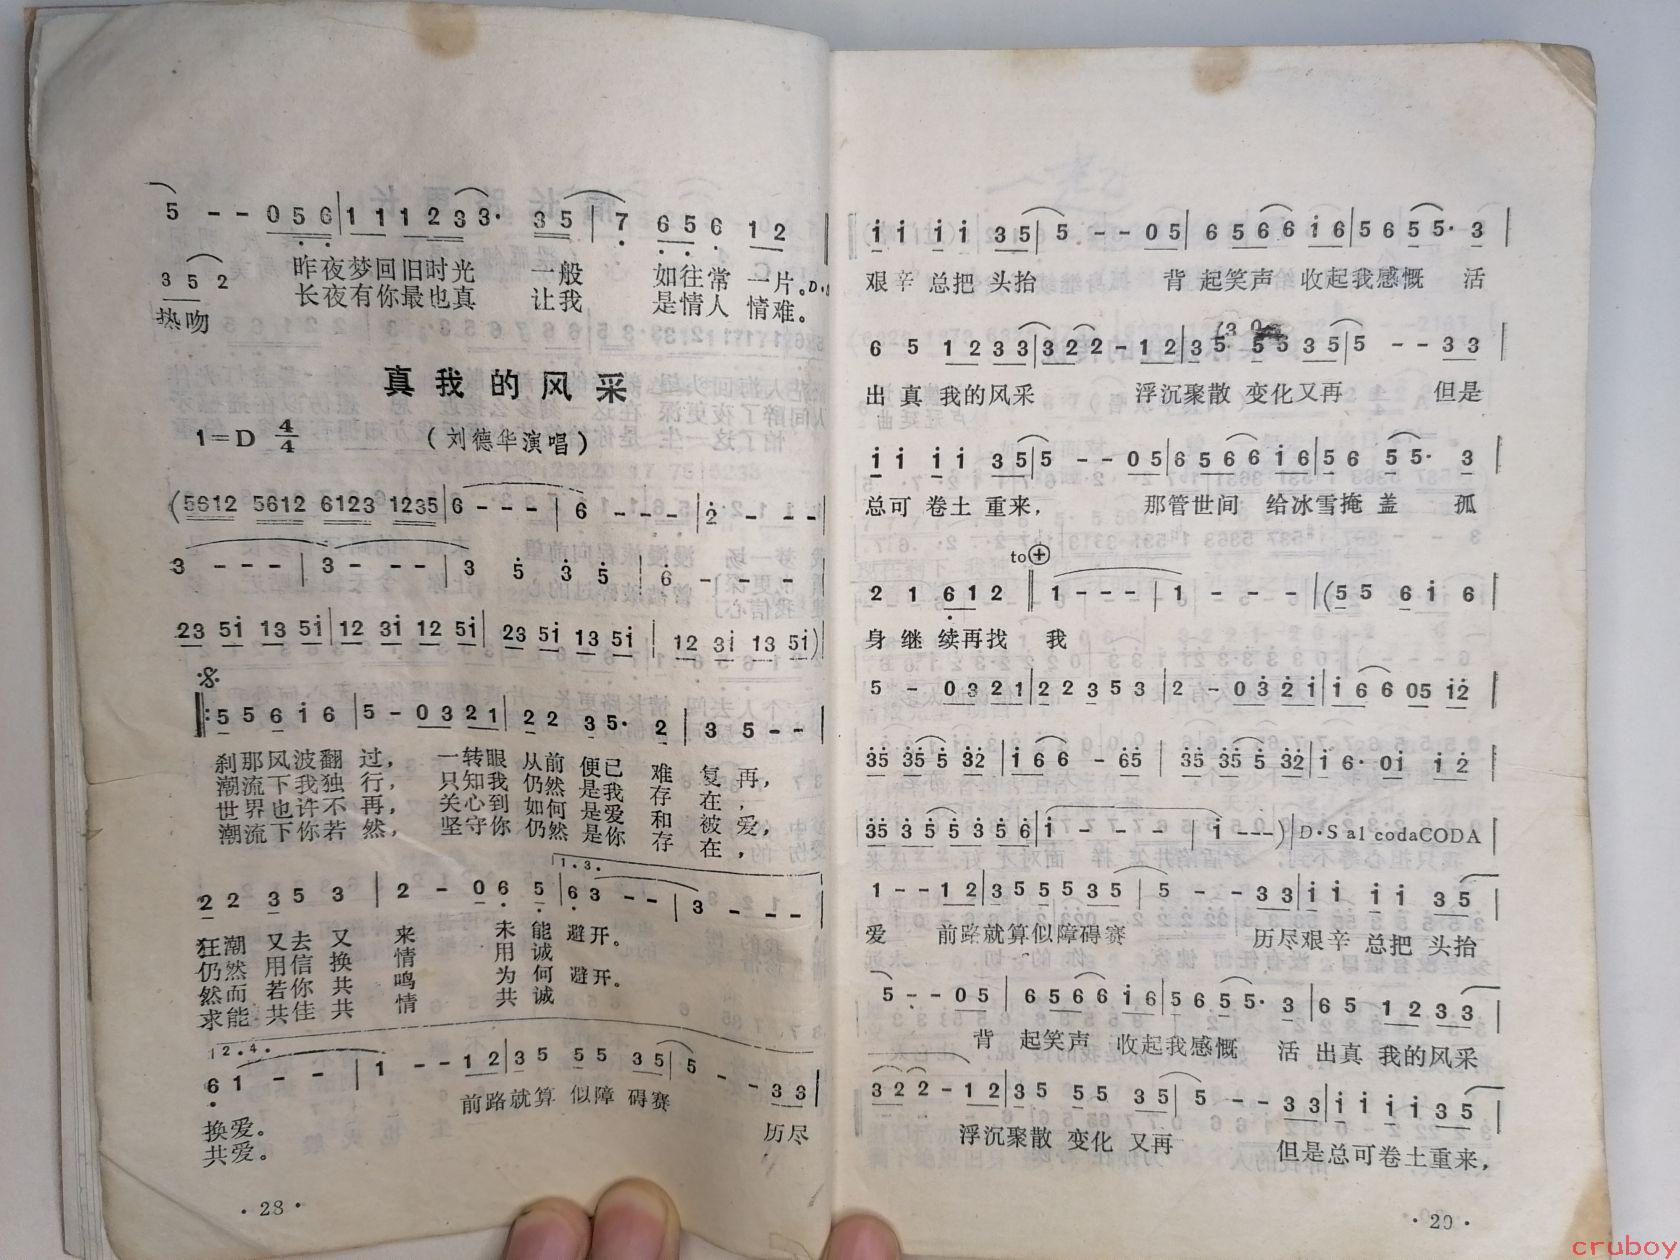 5 - - 0 5 6 | 1 1 1 2 3 3· 3 5 | 7 6 5 6 1 2
昨夜梦回旧时光 一般 如往常 一片。D·
3 5 2 长夜有你最也真 让我 是情人 情难。
热吻
真我的风采
1=D 4/4 (刘德华演唱)
(5612 5612 6123 1235 | 6 - - - | 6 - - - | 2 - - - |
3 - - - | 3 - - - | 3 5 3 5 | 6 - - - |
23 5i 13 5i | 12 3i 12 5i | 23 5i 13 5i | 12 3i 13 5i) |
5 5 6 i 6 | 5 - 0 3 2 1 | 2 2 3 5· 2 | 3 5 - - |
刹那风波翻 过, 一转眼 从前 便已 难 复 再,
潮流下我独 行, 只知我 仍然 是我 存 在 ,
世界也许不 再, 关心到 如何 是爱 和 被 爱,
潮流下你若 然, 坚守你 仍然 是你 存 在 ,
1.3.
2 2 3 5 3 | 2 - 0 6 5 | 6 3 - - | 3 - - - |
狂潮 又去 又 来 未 能 避开。
仍然 用信 换 情 用 诚
然而 若你 共 鸣 为 何 避开。
求能 共佳 共 情 共 诚
12.4.
6 1 - - | 1 - - 1 2 | 3 5 5 5 3 5 | 5 - - 3 3 |
前路就算 似障 碍赛
换爱。 历尽
共爱。
·28·
i i i i 3 5 | 5 - - 0 5 | 6 5 6 6 i 6 | 5 6 5 5· 3 |
艰辛 总把 头抬 背 起笑声 收起我感慨 活
6 5 1 2 3 3 | 3 2 2 - 1 2 | 3 5· 5 5 3 5 | 5 - - 3 3 |
出 真 我的风采 浮沉聚散 变化又再 但是
i i i i 3 5 | 5 - - 0 5 | 6 5 6 6 i 6 | 5 6 5 5· 3 |
总可 卷土 重来, 那管世间 给冰雪掩 盖 孤
to⊕
2 1 6 1 2 ‖ 1 - - - | 1 - - - | (5 5 6 i 6 |
身 继 续再找 我
5 - 0 3 2 1 | 2 2 3 5 3 | 2 - 0 3 2 i | i 6 6 05 i2 |
35 35 5 32 | i 6 6 - 65 | 35 35 5 32 | i 6· 0i i 2 |
35 3 5 5 3 5 6 | i - - - | i - - -) | D·S al codaCODA |
1 - - 1 2 | 3 5 5 5 3 5 | 5 - - 3 3 | i i i i 3 5 |
爱 前路就算似障碍赛 历尽艰辛 总把 头抬
5 - - 0 5 | 6 5 6 6 i 6 | 5 6 5 5· 3 | 6 5 1 2 3 3 |
背 起笑声 收起我感慨 活 出真 我的风采
3 2 2 - 1 2 | 3 5 5 5 3 5 | 5 - - 3 3 | i i i i 3 5 |
浮沉聚散 变化 又再 但是总可卷土重来,
·29·
cruboy